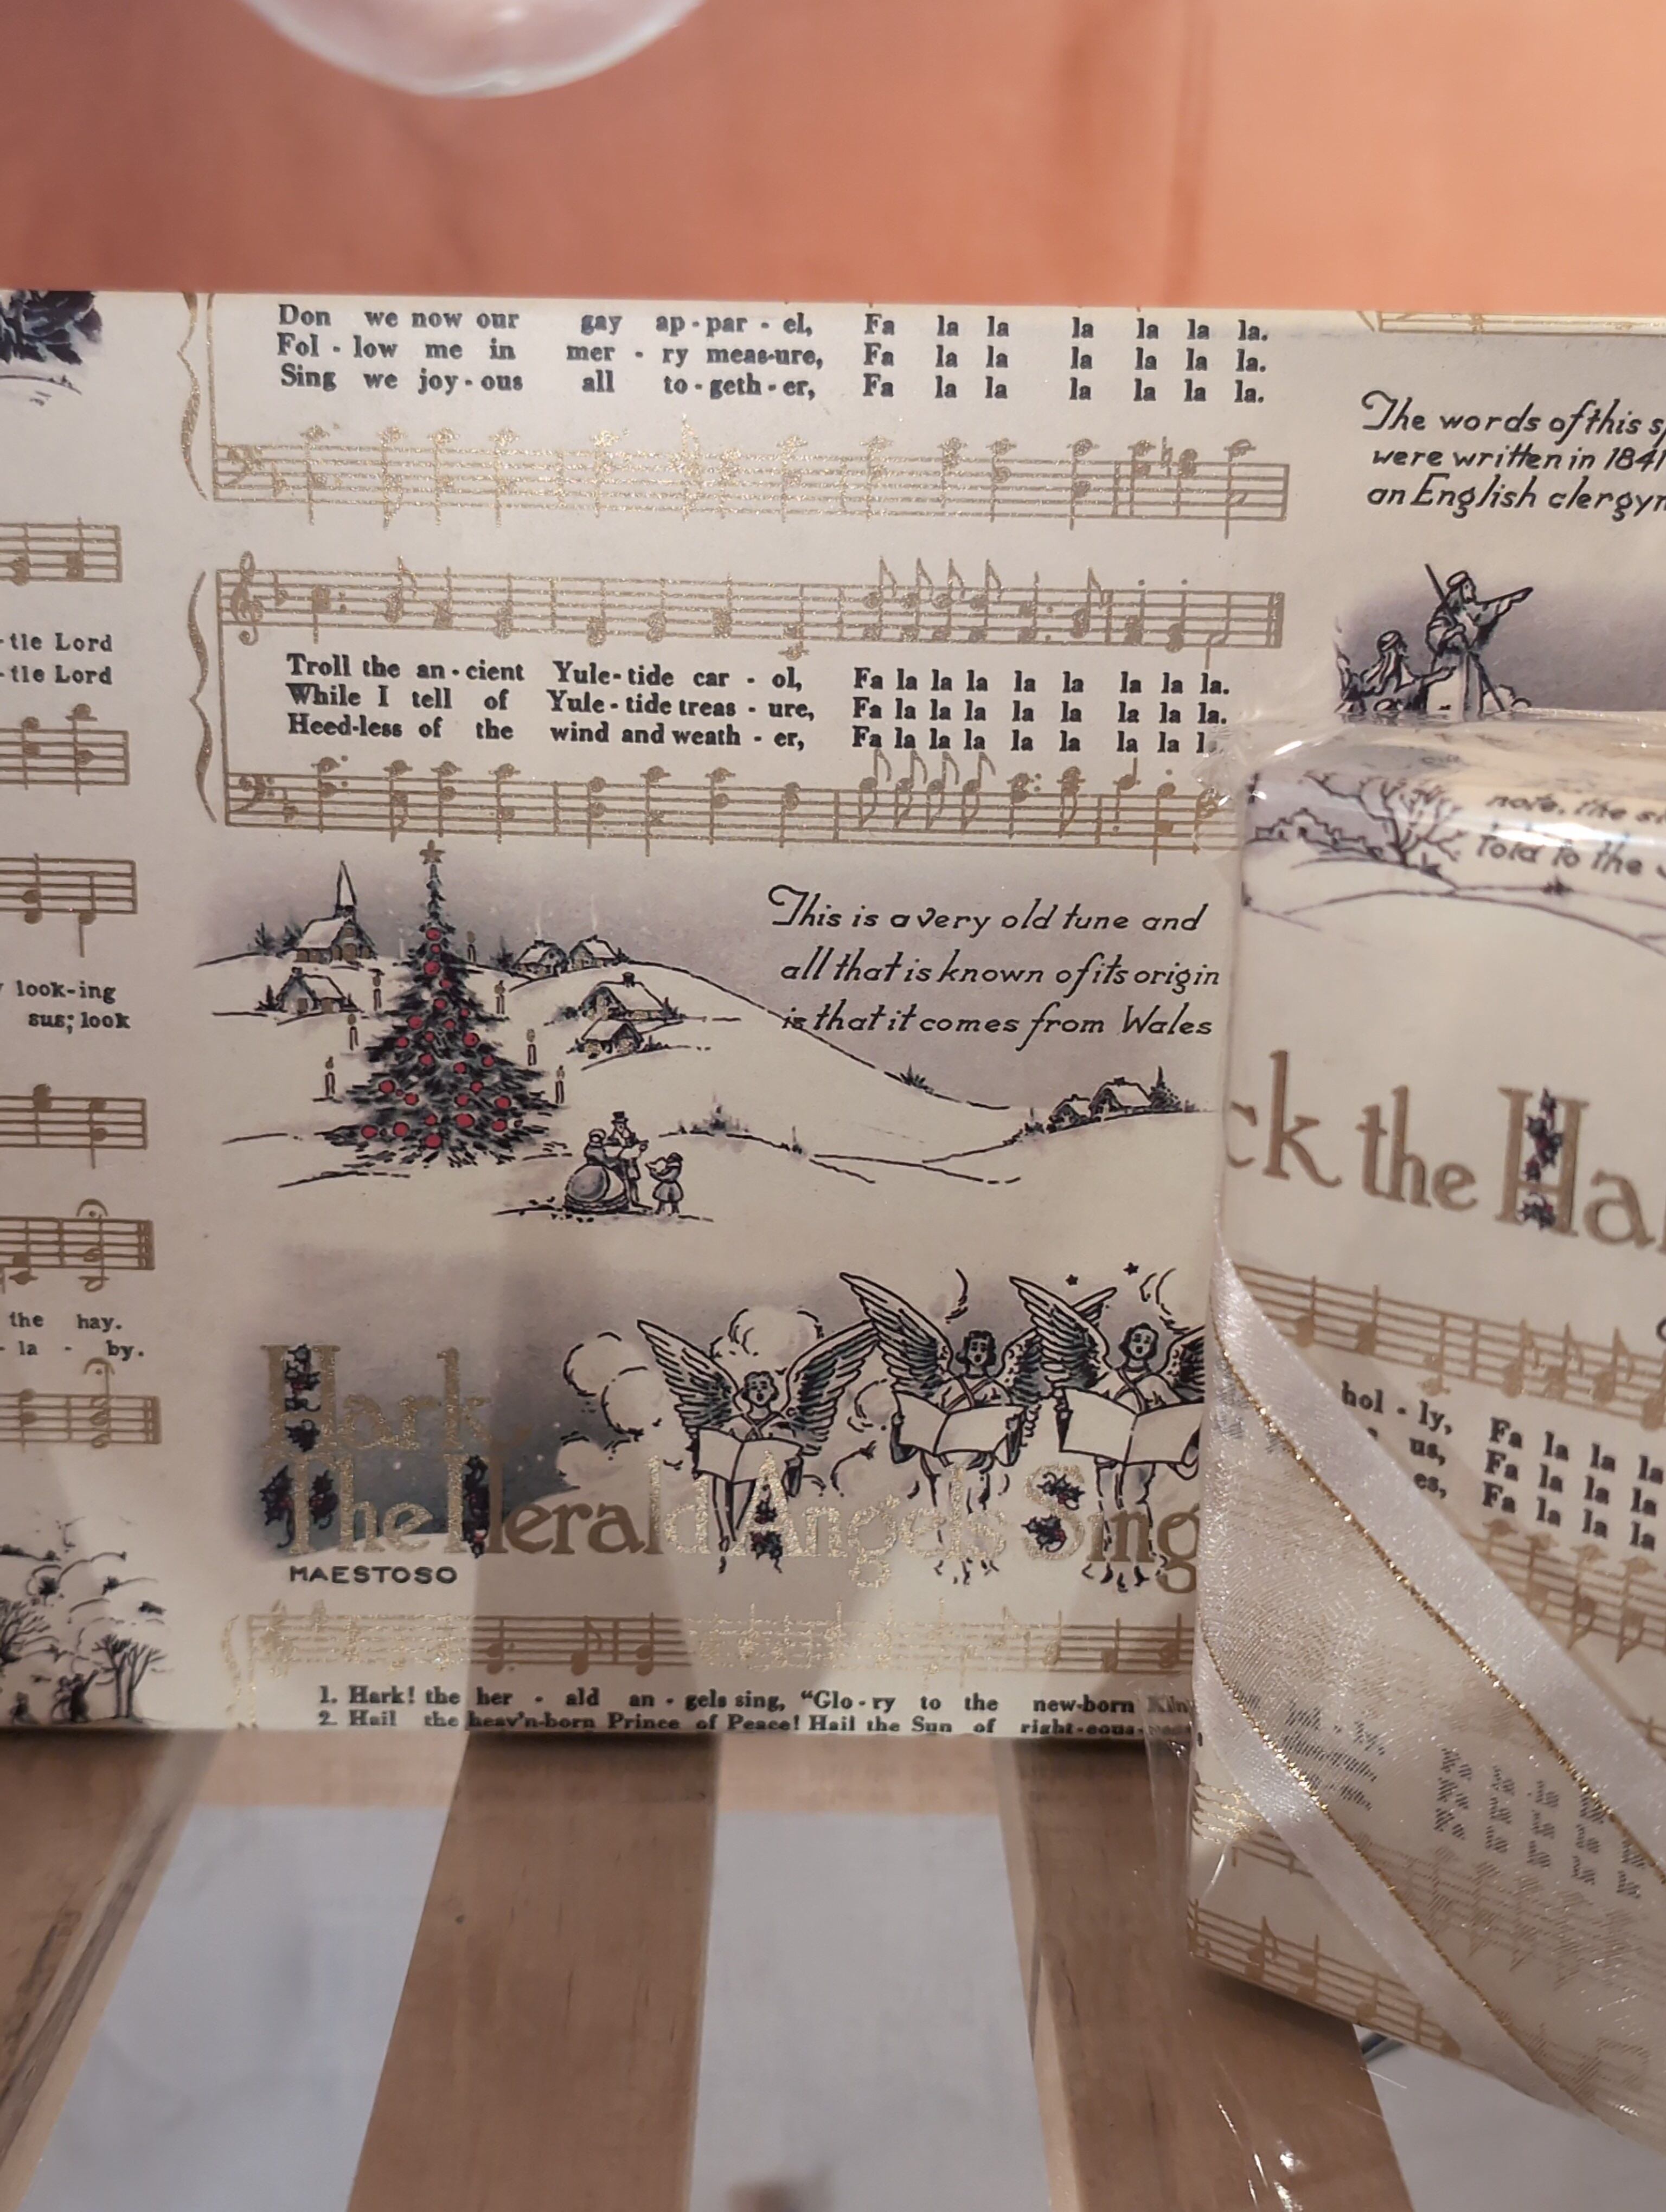 Don we now our gay ap-par-el, Fa la la la la la la.
Fol-low me in mer-ry meas-ure, Fa la la la la la la.
Sing we joy-ous all to-geth-er, Fa la la la la la la.
Troll the an-cient Yule-tide car-ol, Fa la la la la la la la la.
While I tell of Yule-tide treas-ure, Fa la la la la la la la la.
Heed-less of the wind and weath-er, Fa la la la la la la la
This is a very old tune and
all that is known of its origin
is that it comes from Wales
Hark
The Herald Angels Sing
MAESTOSO
1. Hark! the her-ald an-gels sing, "Glo-ry to the new-born
2. Hail the heav'n-born Prince of Peace! Hail the Sun of right-eous-
-tle Lord
-tle Lord
look-ing
sus; look
the hay.
-la-by.
The words of this
were written in 1841
an English
note, the
told to the
ck the Ha
hol-ly, Fa la la la
us, Fa la la la
es, Fa la la la